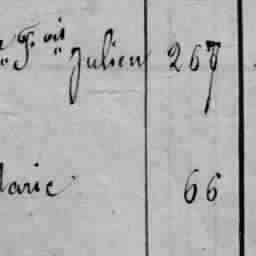 " F.ois " Julien 267
Marie 66